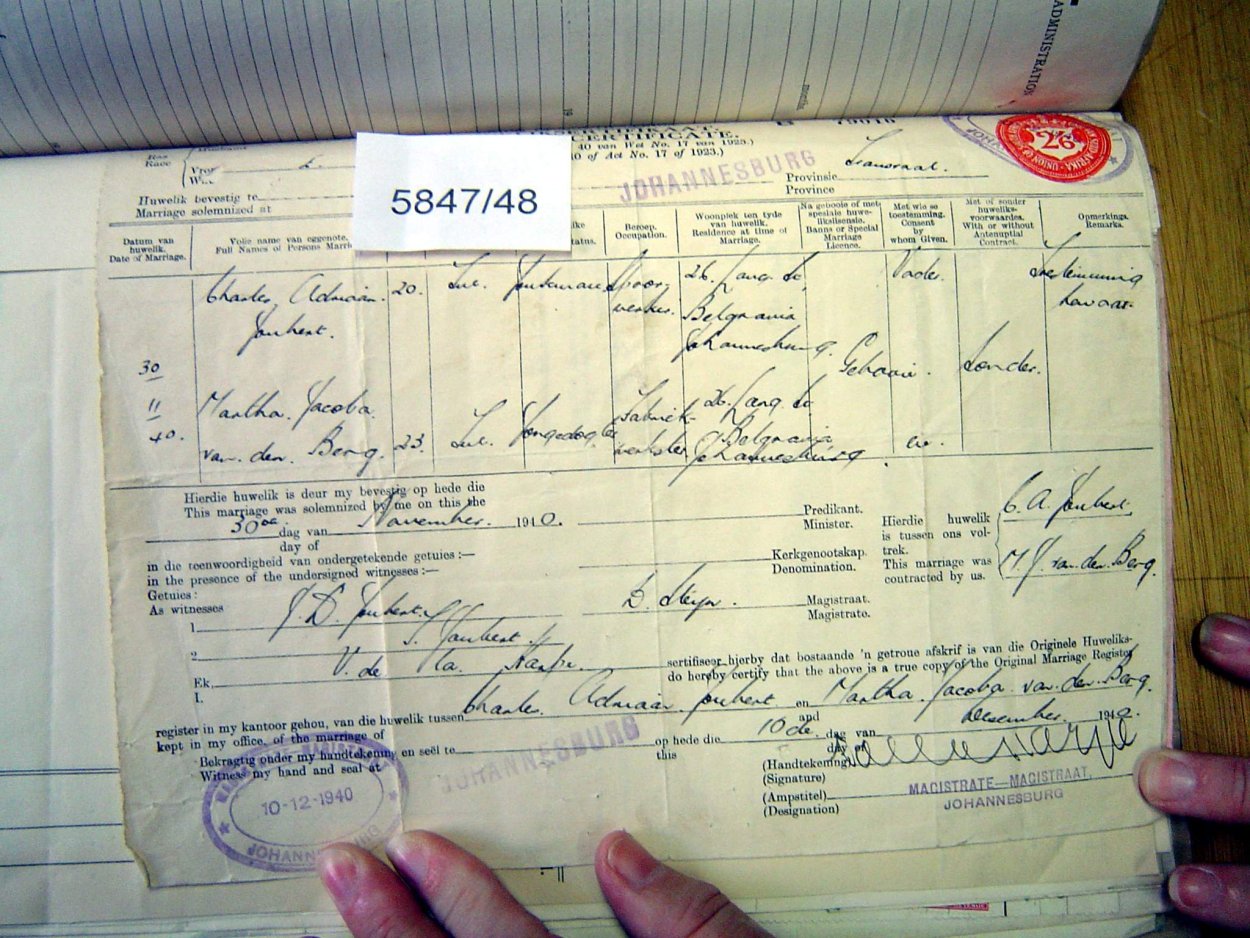 ADMINISTRATION
CERTIFICATE.
40 van Wet No. 17 van 1923.)
40 of Act No. 17 of 1923.)
Ras
Race
JOHANNESBURG
Provinsie
Province
Transvaal.
2/6
5847/48
Huwelik bevestig te
Marriage solemnized at
Datum van huwelik.
Date of Marriage.
Volle name van eggenote.
Full Names of Persons Marri
Beroep.
Occupation.
Woonplek ten tyde van huwelik.
Residence at time of Marriage.
Na gebooie of met spesiale huweliksliensie.
Banns or Special Marriage Licence.
Met wie se toestemming.
Consent by whom Given.
Met of sonder huweliksvoorwaardes.
With or without Antenuptial Contract.
Opmerkings.
Remarks.
30
11
40.
Charles Adriaan Joubert.
20.
Jonkman
26 Lang St,
Belgravia
Johannesburg.
Vader.
Toestemming
Gebooie.
Sonder.
Martha Jacoba
van den Berg.
23.
Fabriek-
werkster
26 Lang St
Belgravia
Johannesburg
Hierdie huwelik is deur my bevestig op hede die
This marriage was solemnized by me on this the
30ste dag van November 1940.
day of
Predikant.
Minister.
in die teenwoordigheid van ondergetekende getuies:—
in the presence of the undersigned witnesses:—
Kerkgenootskap.
Denomination.
Getuie:
As witnesses
Hierdie huwelik
is tussen ons vol-
trek.
This marriage was
contracted by us.
C. A. Joubert.
M. J. van den Berg.
1 J. D. Joubert
B. Steyn.
Magistraat.
Magistrate.
2 S. Joubert
Ek, V. de la Harpe
I.
sertifiseer hierby dat bostaande 'n getroue afskrif is van die Originele Huweliks-
do hereby certify that the above is a true copy of the Original Marriage Register
register in my kantoor gehou, van die huwelik tussen Charles Adriaan Joubert en Martha Jacoba van den Berg.
kept in my office, of the marriage of and
Bekragtig onder my handtekening en seël te
Witness my hand and seal at
JOHANNESBURG
op hede die 10de dag van Desember 1940.
this day of
(Handtekening)
(Signature)
(Ampstitel)
(Designation)
MAGISTRATE—MAGISTRAAT.
JOHANNESBURG
10-12-1940